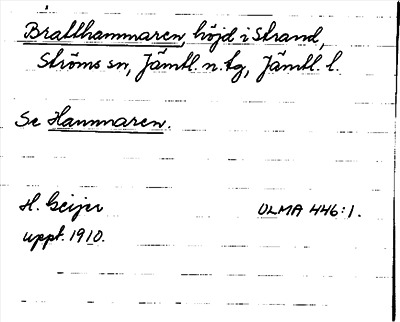 Bratthammaren, höjd i Strand,
Ströms sn, Jämtl. n. tg, Jämtl. l.
Se Hammaren.
H. Geijer ULMA 446:1.
uppt. 1910.